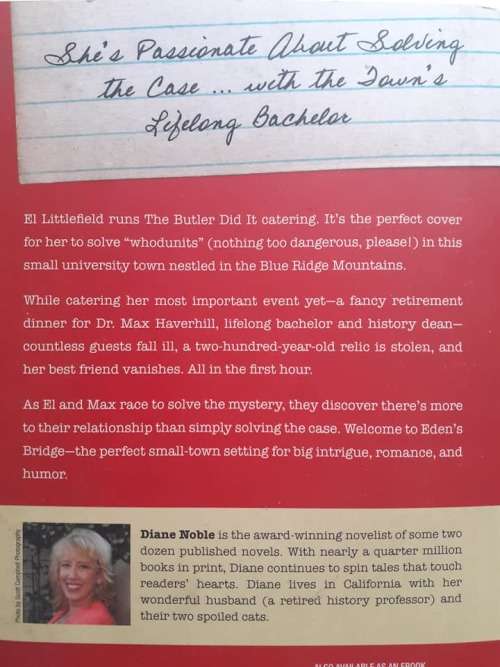 She's Passionate About Solving
the Case ... with the Town's
Lifelong Bachelor
El Littlefield runs The Butler Did It catering. It's the perfect cover
for her to solve “whodunits” (nothing too dangerous, please!) in this
small university town nestled in the Blue Ridge Mountains.
While catering her most important event yet—a fancy retirement
dinner for Dr. Max Haverhill, lifelong bachelor and history dean—
countless guests fall ill, a two-hundred-year-old relic is stolen, and
her best friend vanishes. All in the first hour.
As El and Max race to solve the mystery, they discover there's more
to their relationship than simply solving the case. Welcome to Eden's
Bridge—the perfect small-town setting for big intrigue, romance, and
humor.
Photo by Scott Campbell Photography
Diane Noble is the award-winning novelist of some two
dozen published novels. With nearly a quarter million
books in print, Diane continues to spin tales that touch
readers' hearts. Diane lives in California with her
wonderful husband (a retired history professor) and
their two spoiled cats.
ALSO AVAILABLE AS AN EBOOK